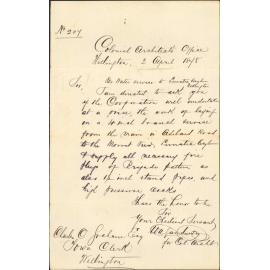 No 207
Colonial Architects Office
Wellington, 2 April 1898
Sir,
Re Water service to Porirua Asylum
Wellington
I am directed to ask you
if the Corporation will undertake
at a price, the work of laying
on a 4 inch branch service
from the main in Adelaide Road
to the Mount View, Asylum
& supply all necessary fire
plugs of Brigade pattern as
also 2½ inch stand pipes, and
high pressure cocks
I have the honor to be
Sir
Your Obedient Servant,
for Col. Archt.
Charles C. Graham Esq
Town Clerk
Wellington